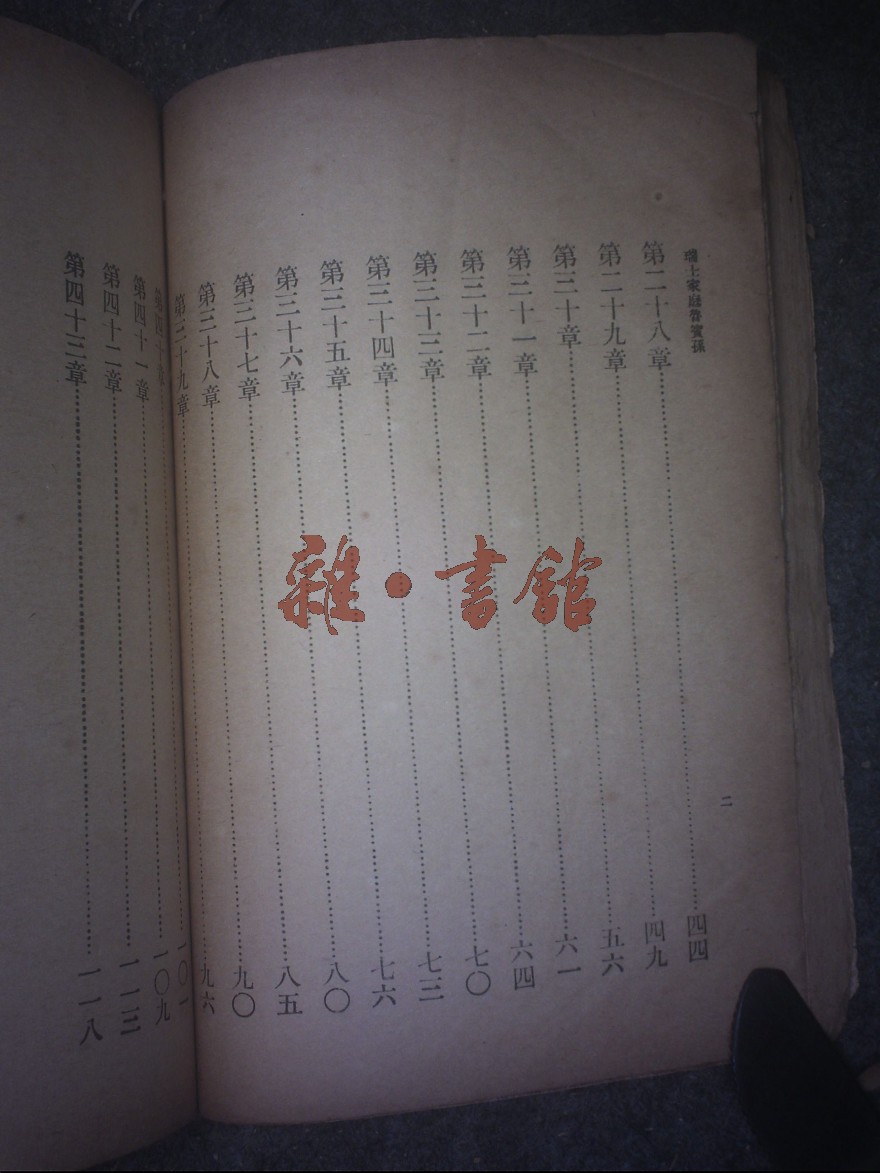 瑞士家庭魯賓孫
二
第二十八章……四四
第二十九章……四九
第三十章……五六
第三十一章……六一
第三十二章……六四
第三十三章……七〇
第三十四章……七三
第三十五章……七六
第三十六章……八〇
第三十七章……八五
第三十八章……九〇
第三十九章……九六
第四十章……一〇一
第四十一章……一〇九
第四十二章……一一三
第四十三章……一一八
雜·書館